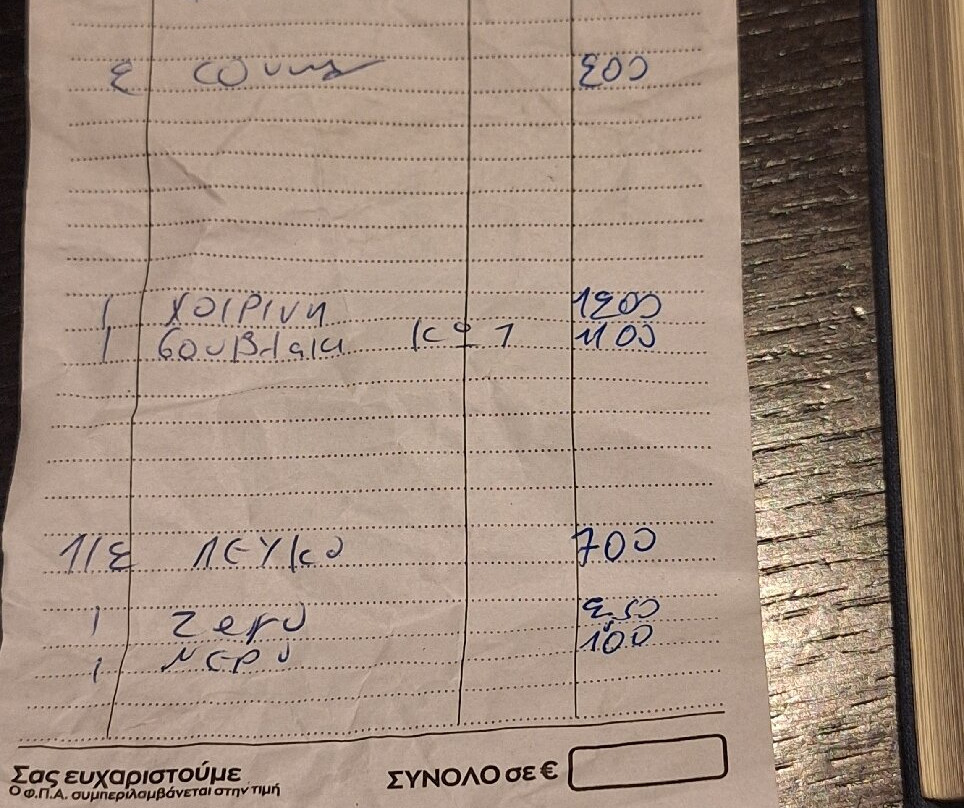 2 200
1 χοιρινη 1200
1 σουβλακι κοτ 1100
1/2 λευκο 700
1 zero 2,50
1 νερο 100
Σας ευχαριστούμε
Ο Φ.Π.Α. συμπεριλαμβάνεται στην τιμή
ΣΥΝΟΛΟ σε €